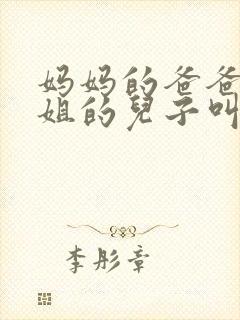 妈妈的爸爸
姐的兒子叫
李彤章